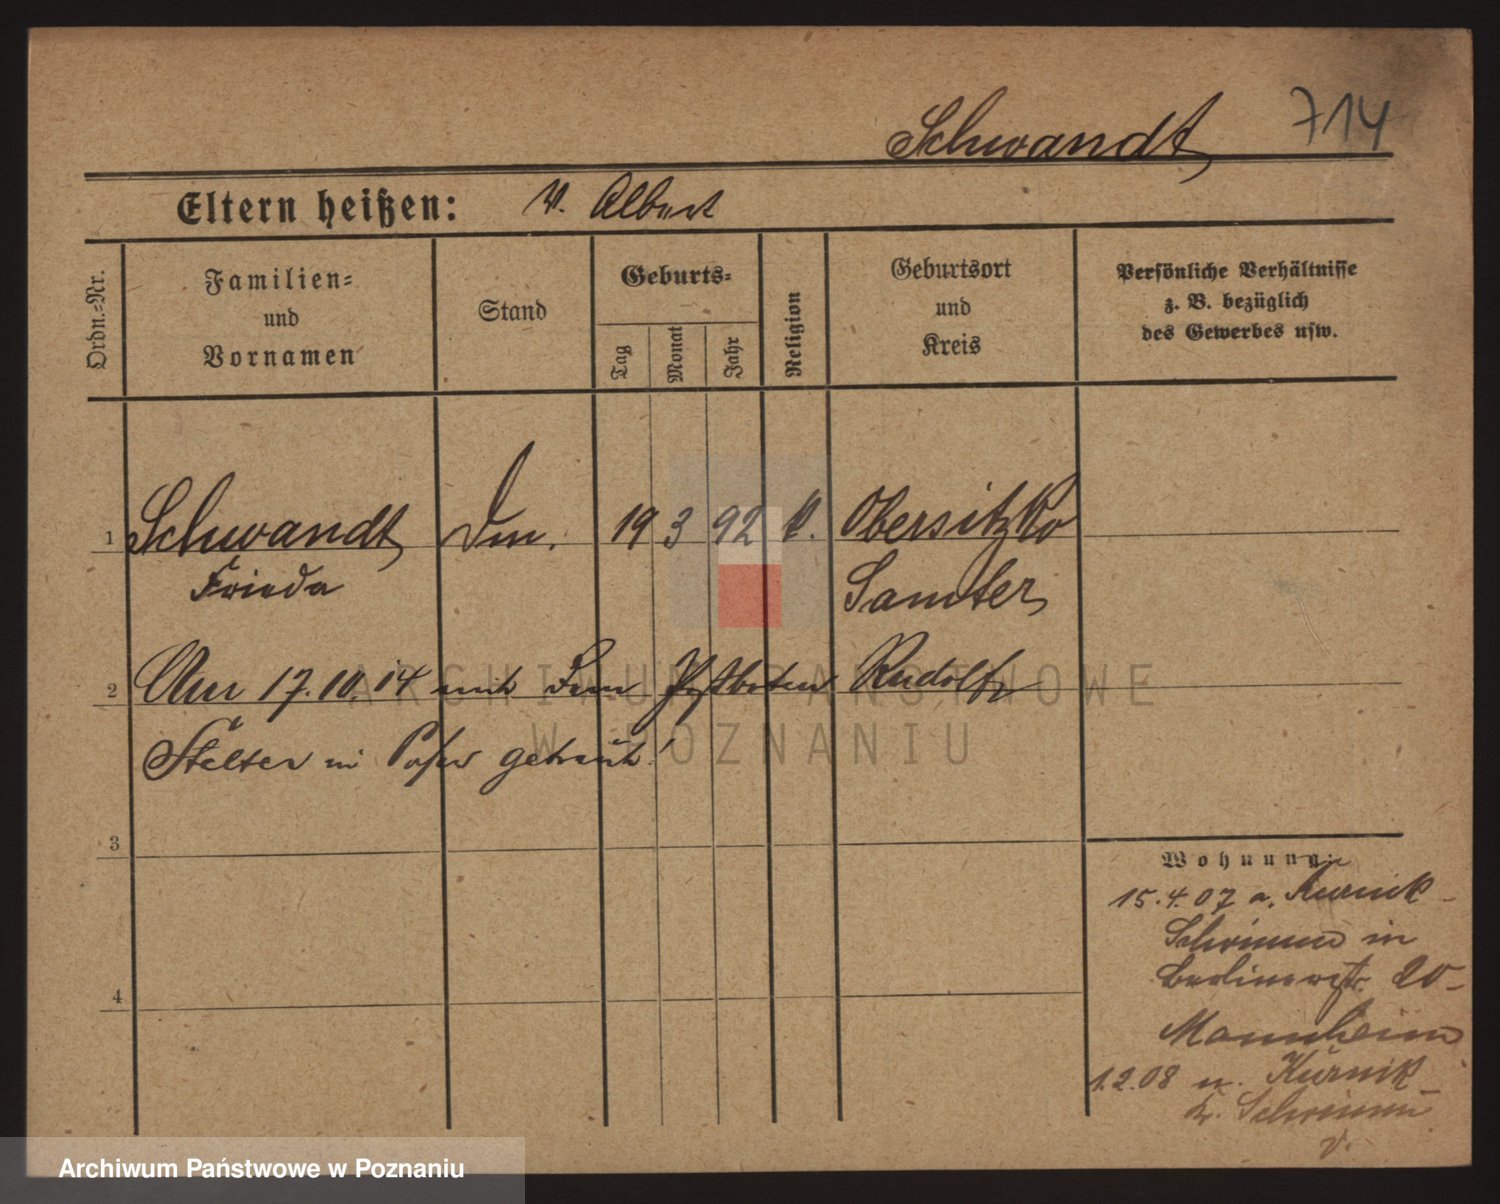 Schwandt 714
Eltern heißen: V. Albert
Ordn.-Nr.
Familien- und Vornamen
Stand
Geburts-
Tag
Monat
Jahr
Religion
Geburtsort und Kreis
Persönliche Verhältnisse
z. B. bezüglich
des Gewerbes usw.
1 Schwandt 19 3 92 Obersitzko
Frieda Samter
2 Am 17.10.14 mit dem Postboten Rudolf
Stelter in Posen getraut!
3
4
Wohnung:
15.4.07 a. Kurnik
Schrimm in
Berlinerstr. 20
Mannheim
1.2.08 n. Kurnik
Kr. Schrimm
v.
ARCHIWUM PAŃSTWOWE
W POZNANIU
Archiwum Państwowe w Poznaniu